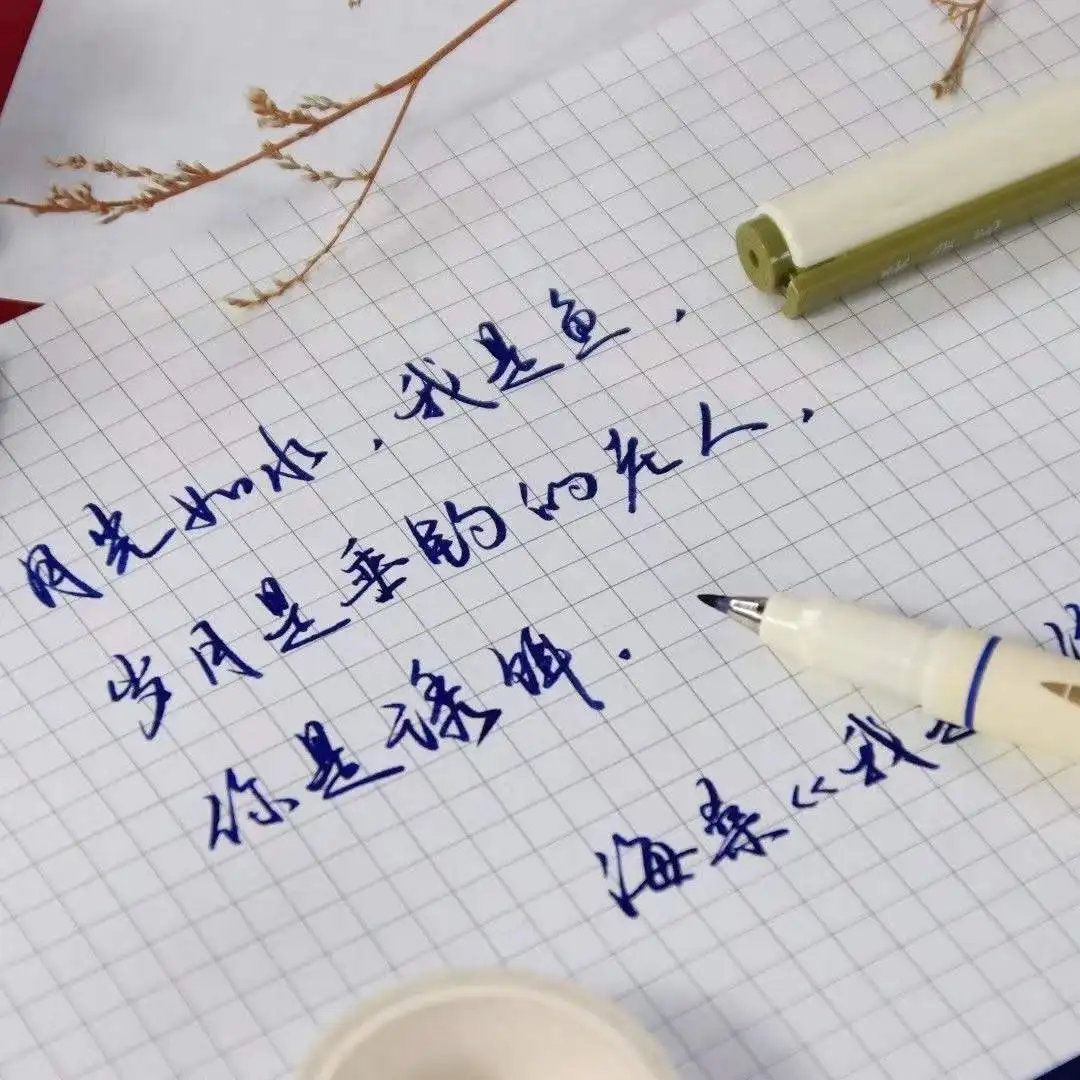 月光如水，我是鱼，
岁月是垂钓的老人，
你是诱饵。
海桑《我